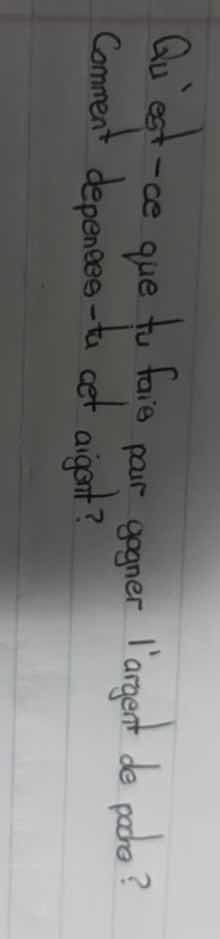 Qu'est-ce que tu fais pour gagner l'argent de poche?
Comment depenses-tu cet argent?